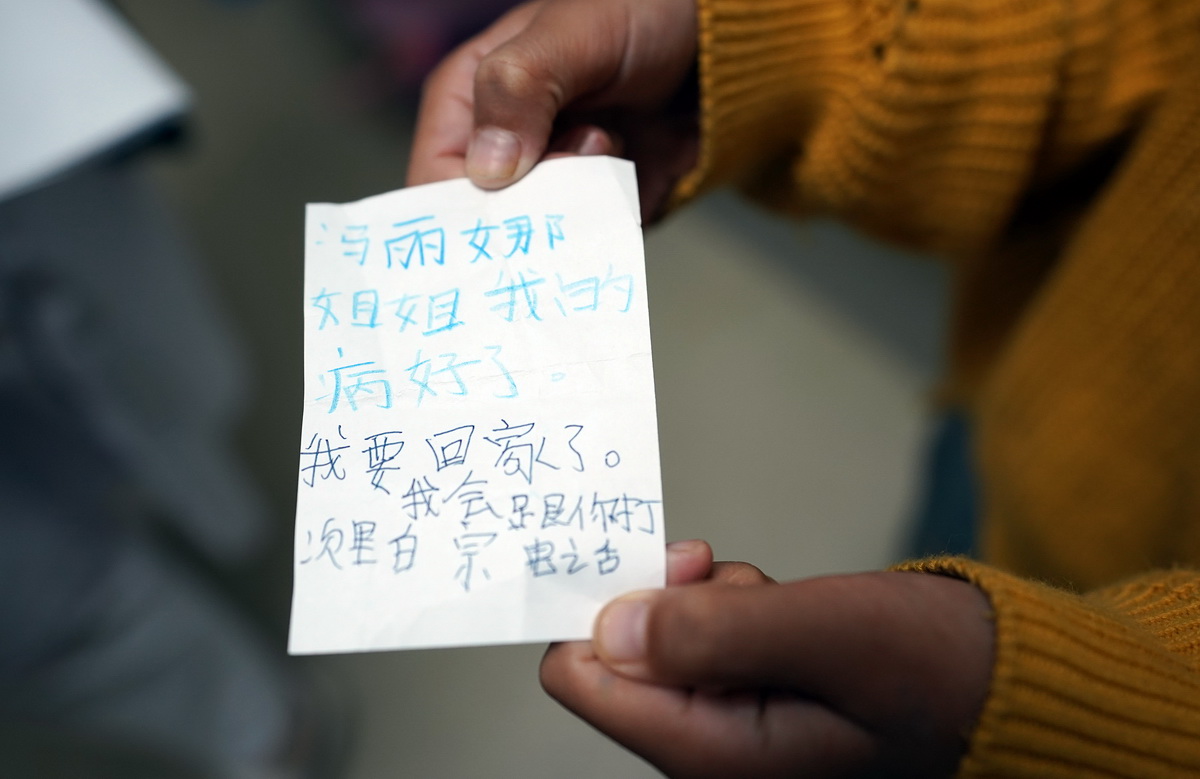 冯丽娜
姐姐 我的
病好了。
我要回家了。
我会跟你打
次里白宗 电话